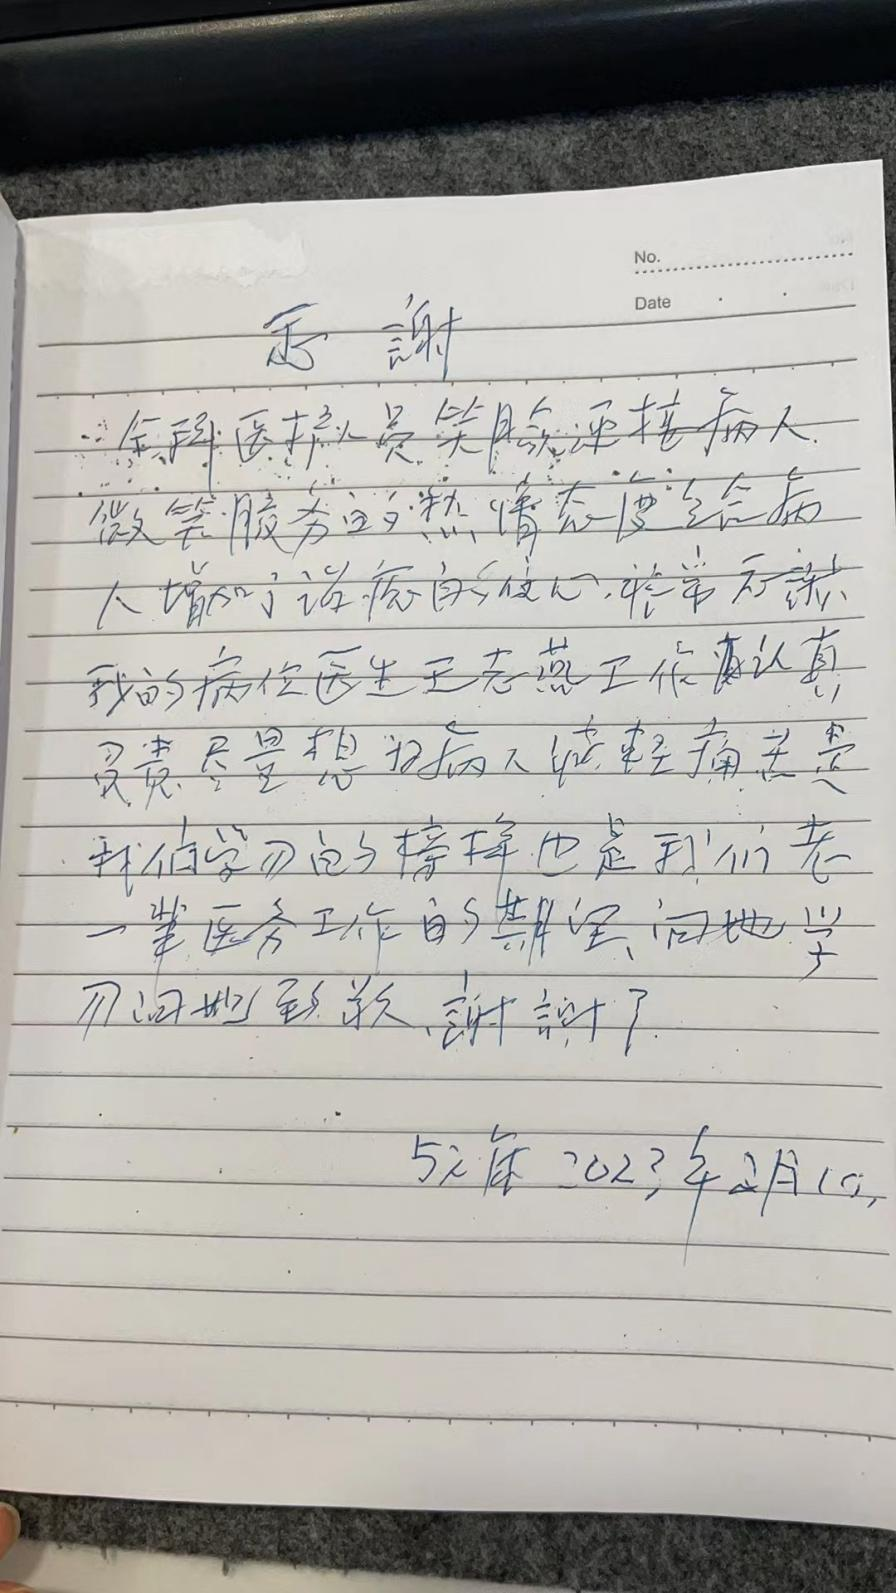 No.
Date
感 謝
全科医护人员笑脸迎接病人.
微笑服务的热情态度给病
人增加了治疗的信心,非常感謝
我的病位医生王志燕工作认真
负责尽量想办病人减轻痛苦是
我们学习的榜样也是我们老
一辈医务工作的期望、向她学
习向她致敬、謝謝了.
2023年2月10,